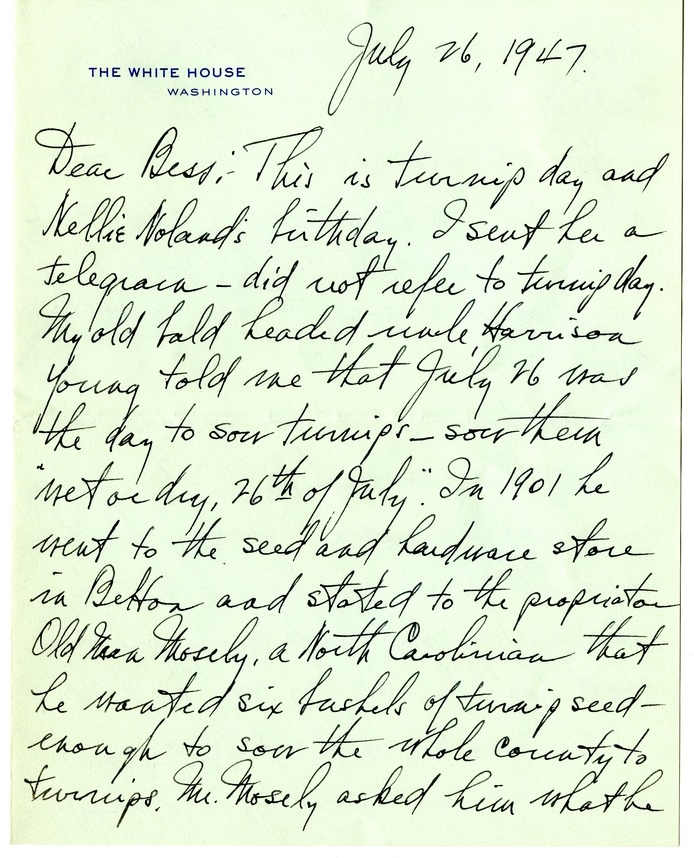 July 26, 1947.
THE WHITE HOUSE
WASHINGTON
Dear Bess;- This is turnip day and
Nellie Noland's birthday. I sent her a
telegram - did not refer to turnip day.
My old bald headed uncle, Harrison
Young told me that July 26 was
the day to sow turnips - sow them
"wet or dry, 26th of July". In 1901 he
went to the seed and hardware store
in Belton and stated to the proprietor
Old Man Mosely, a North Carolinian that
he wanted six bushels of turnip seed -
enough to sow the whole county to
turnips. Mr. Mosely asked him what he